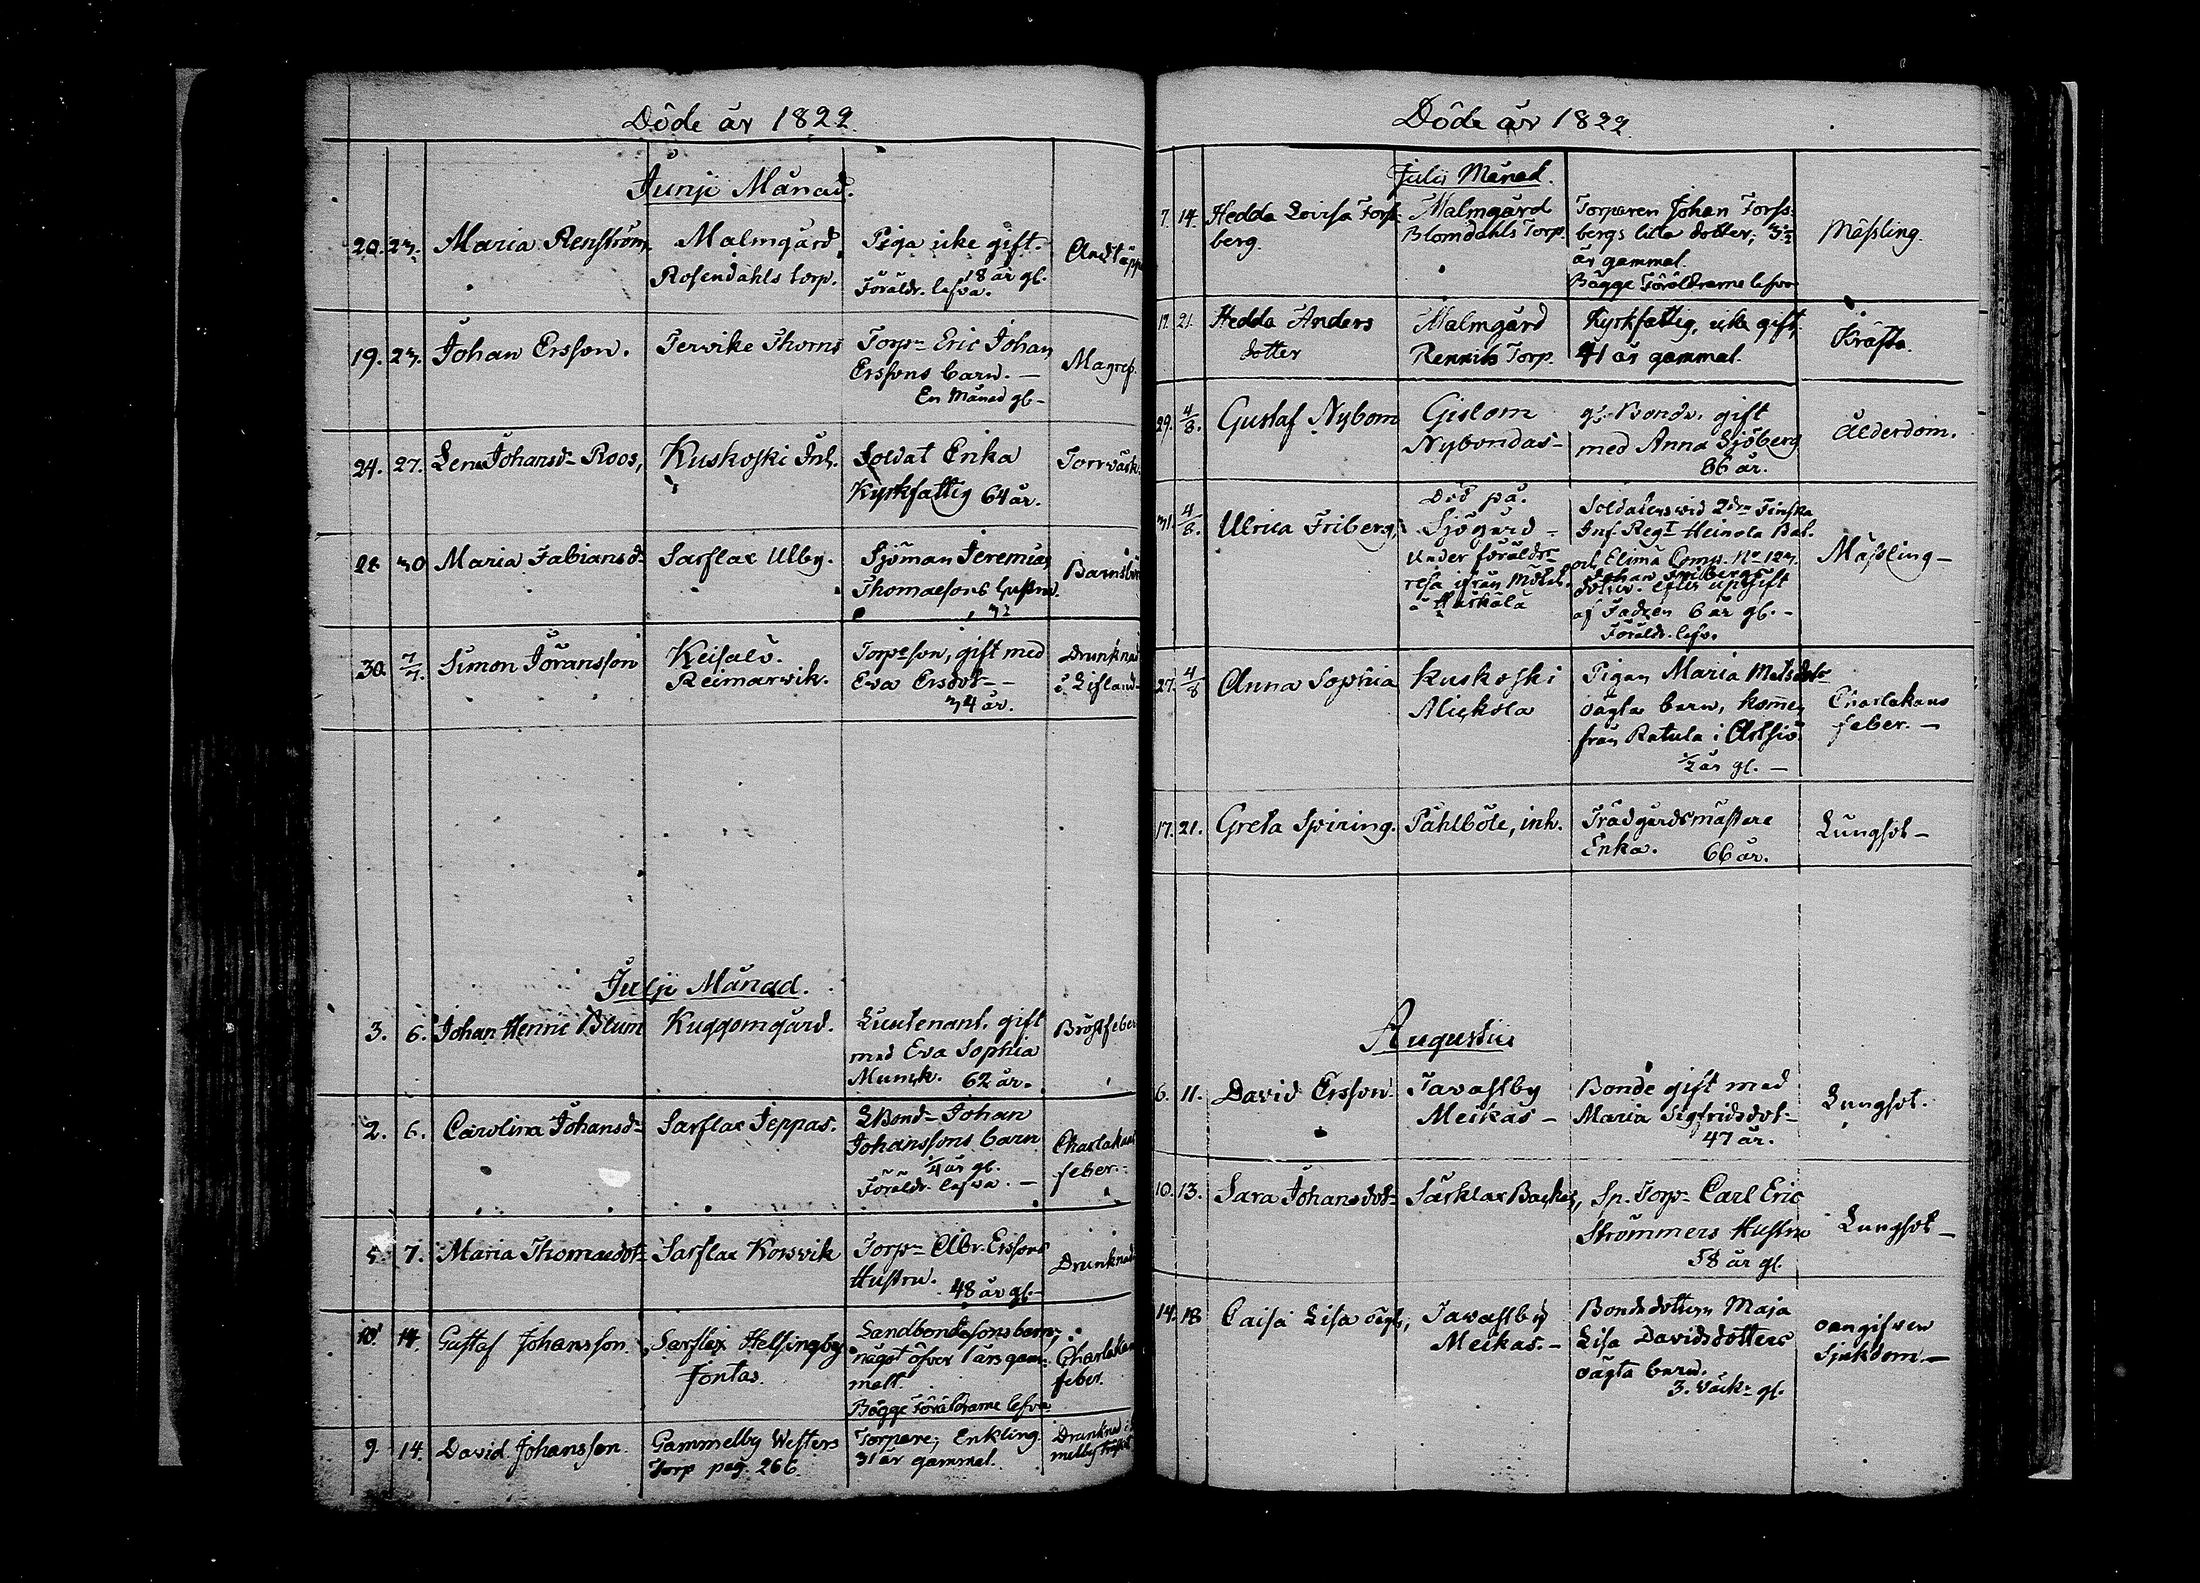 Döde år 1822.
Junji Månad.
20. 23. Maria Renström, Malmgård Piga icke gift. Andtäppa
Rosendahls torp. 18 år gl.
Föräldr. lefva.
19. 23. Johan Ersson. Tervike Thorns Torp= Eric Johan Magref.
Erssons barn. —
En Månad gl—
24. 27. Lena Johansd= Roos, Kuskoski Inh. Soldat Enka Torrvärk
Kyrkfattig 64 år.
28 30 Maria Fabiansd= Sarflax Ulby. Sjöman Jeremias Barnsbörd
Thomæsons hustru.
32
30. 7/7. Simon Jöransson Keisalö. Torpeson, gift med Drunknad
Reimarvik. Eva Ersdot— i Lifland
34 år.
Julji Månad.
3. 6. Johan Henric Blum Kuggomgård. Lieutenant, gift Bröstfeber
med Eva Sophia
Munck. 62 år.
2. 6. Carolina Johansd= Sarflax Jeppas. LBond= Johan Charlakans
Johanssons barn feber.
1/4 år gl.
Föräldr. lefva. —
5 7. Maria Thomædot= Sarflax Korsvik Torp= Abr. Erssons Drunknad
Hustru. 48 år gl.—
10. 14. Gustaf Johansson. Sarflax Helsingby Landbondesons barn, Charlakans
Jontas. något öfver 1 års gam- feber.
malt.
Bägge Föräldrarne lefva
9 14. David Johansson. Gammelby Westers Torpare, Enkling Drunknad i
Torp pag. 266. 31 år gammal. melby träsk
Döde år 1822.
Julii Månad.
7. 14. Hedda Lovisa Fors- Malmgård Torparen Johan Forss- Mässling.
berg. Blomdahls Torp. bergs lilla dotter, 3 1/2
år gammal.
Bägge Föräldrarne lefva
17. 21. Hedda Anders Malmgård Kyrkfattig, icke gift, Kräfta.
dotter Rennits Torp. 41 år gammal.
29. 4/8. Gustaf Nybom Gislom g: Bonde. gift Ålderdom.
Nybondas— med Anna Sjöberg
86 år.
31. 4/8. Ulrica Friberg, Död på Soldatens vid 2dra Finska Mässling—
Sjögård— Inf. Regt Heinola Bat.
under föräldr. och Elimä Comp. No 123
resa ifrån Johan Fribergs
Härkälä dotter. efter uppgift
af Fadren 6 år gl.—
Föräldr. lefv.
27. 4/8 Anna Sophia Kuskoski Pigan Maria Matsdot= Charlakans
Mickola oägta barn, kommen feber. —
från Ratula i Artsiö.
1/2 år gl. —
17. 21. Greta Spiring. Påhlböle, inh. Trädgårdsmästare Lungsot—
Enka. 66 år.
Augustus
6. 11. David Ersson. Tavastby Bonde gift med Lungsot.
Meikas— Maria Sigfridsdot—
47 år.
10. 13. Sara Johansdot= Särklax Backas, Sp. Torp= Carl Eric Lungsot—
Strömmers Hustru
58 år gl.
14. 18 Caisa Lisa oägt, Tavastby Bondedottern Maja oangifven
Meikas.— Lisa Davidsdotters Sjukdom.—
oägta barn.
3. väck= gl.